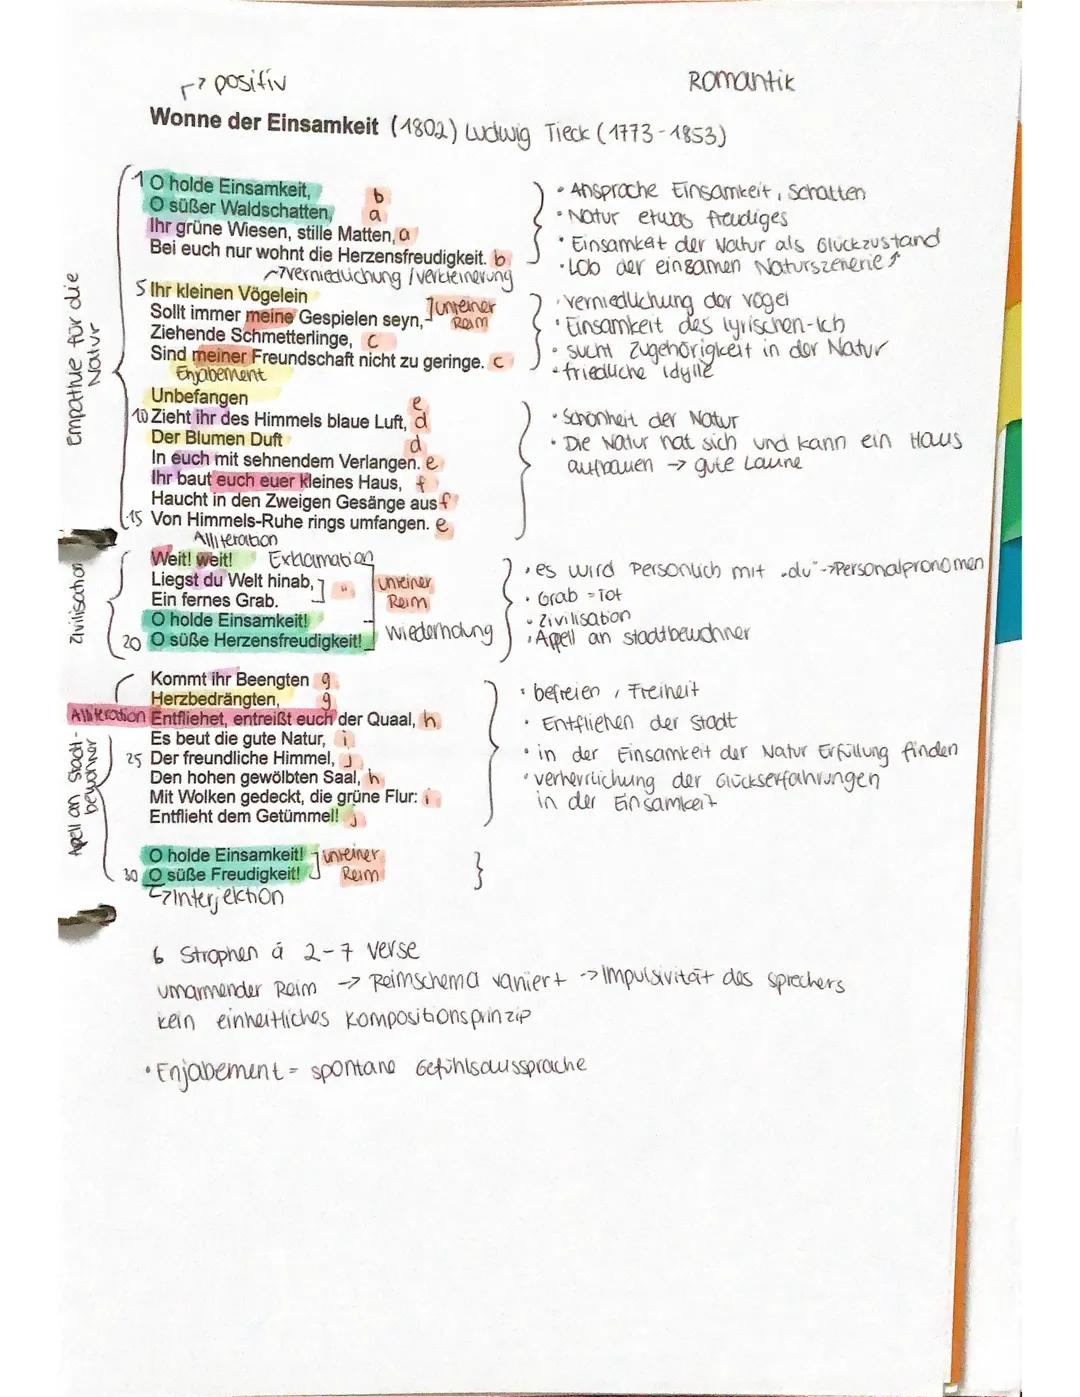 ↱ positiv
Romantik
Wonne der Einsamkeit (1802) Ludwig Tieck (1773-1853)
1 O holde Einsamkeit, b
O süßer Waldschatten, a
Ihr grüne Wiesen, stille Matten, a
Bei euch nur wohnt die Herzensfreudigkeit. b
→ Verniedlichung / Verkleinerung
• Ansprache Einsamkeit, Schatten
• Natur etwas freudiges
• Einsamkeit der Natur als Glückzustand
• Lob der einsamen Naturszenerie ↑
Empathie für die Natur
5 Ihr kleinen Vögelein
Sollt immer meine Gespielen seyn, unreiner Reim
Ziehende Schmetterlinge, c
Sind meiner Freundschaft nicht zu geringe. c
Enjabement
• Verniedlichung der Vögel
• Einsamkeit des lyrischen-Ich
• sucht Zugehörigkeit in der Natur
• friedliche Idylle
Unbefangen e
10 Zieht ihr des Himmels blaue Luft, d
Der Blumen Duft d
In euch mit sehnendem Verlangen. e
Ihr baut euch euer kleines Haus, f
Haucht in den Zweigen Gesänge aus f
15 Von Himmels-Ruhe rings umfangen. e
• Schönheit der Natur
• Die Natur hat sich und kann ein Haus
aufbauen → gute Laune
Alliteration
Zivilisation
Weit! weit! Exklamation
Liegst du Welt hinab, " unreiner
Ein fernes Grab. Reim
O holde Einsamkeit!
20 O süße Herzensfreudigkeit! Wiederholung
• es wird Persönlich mit „du" → Personalpronomen
• Grab = Tot
• Zivilisation
• Appell an Stadtbewohner
Kommt ihr Beengten g
Herzbedrängten, g
Alliteration Entfliehet, entreißt euch der Quaal, h
Es beut die gute Natur, i
25 Der freundliche Himmel, j
Den hohen gewölbten Saal, h
Mit Wolken gedeckt, die grüne Flur: i
Entflieht dem Getümmel! j
Apell an Stadt-bewohner
• befreien, Freiheit
• Entfliehen der Stadt
• in der Einsamkeit der Natur Erfüllung finden
• verherrlichung der Glückserfahrungen
in der Einsamkeit
O holde Einsamkeit! unreiner
30 O süße Freudigkeit! Reim
↳ Interjektion
6 Strophen á 2-7 Verse
umarmender Reim → Reimschema variiert → Impulsivität des Sprechers
kein einheitliches Kompositionsprinzip
• Enjabement = spontane Gefühlsaussprache